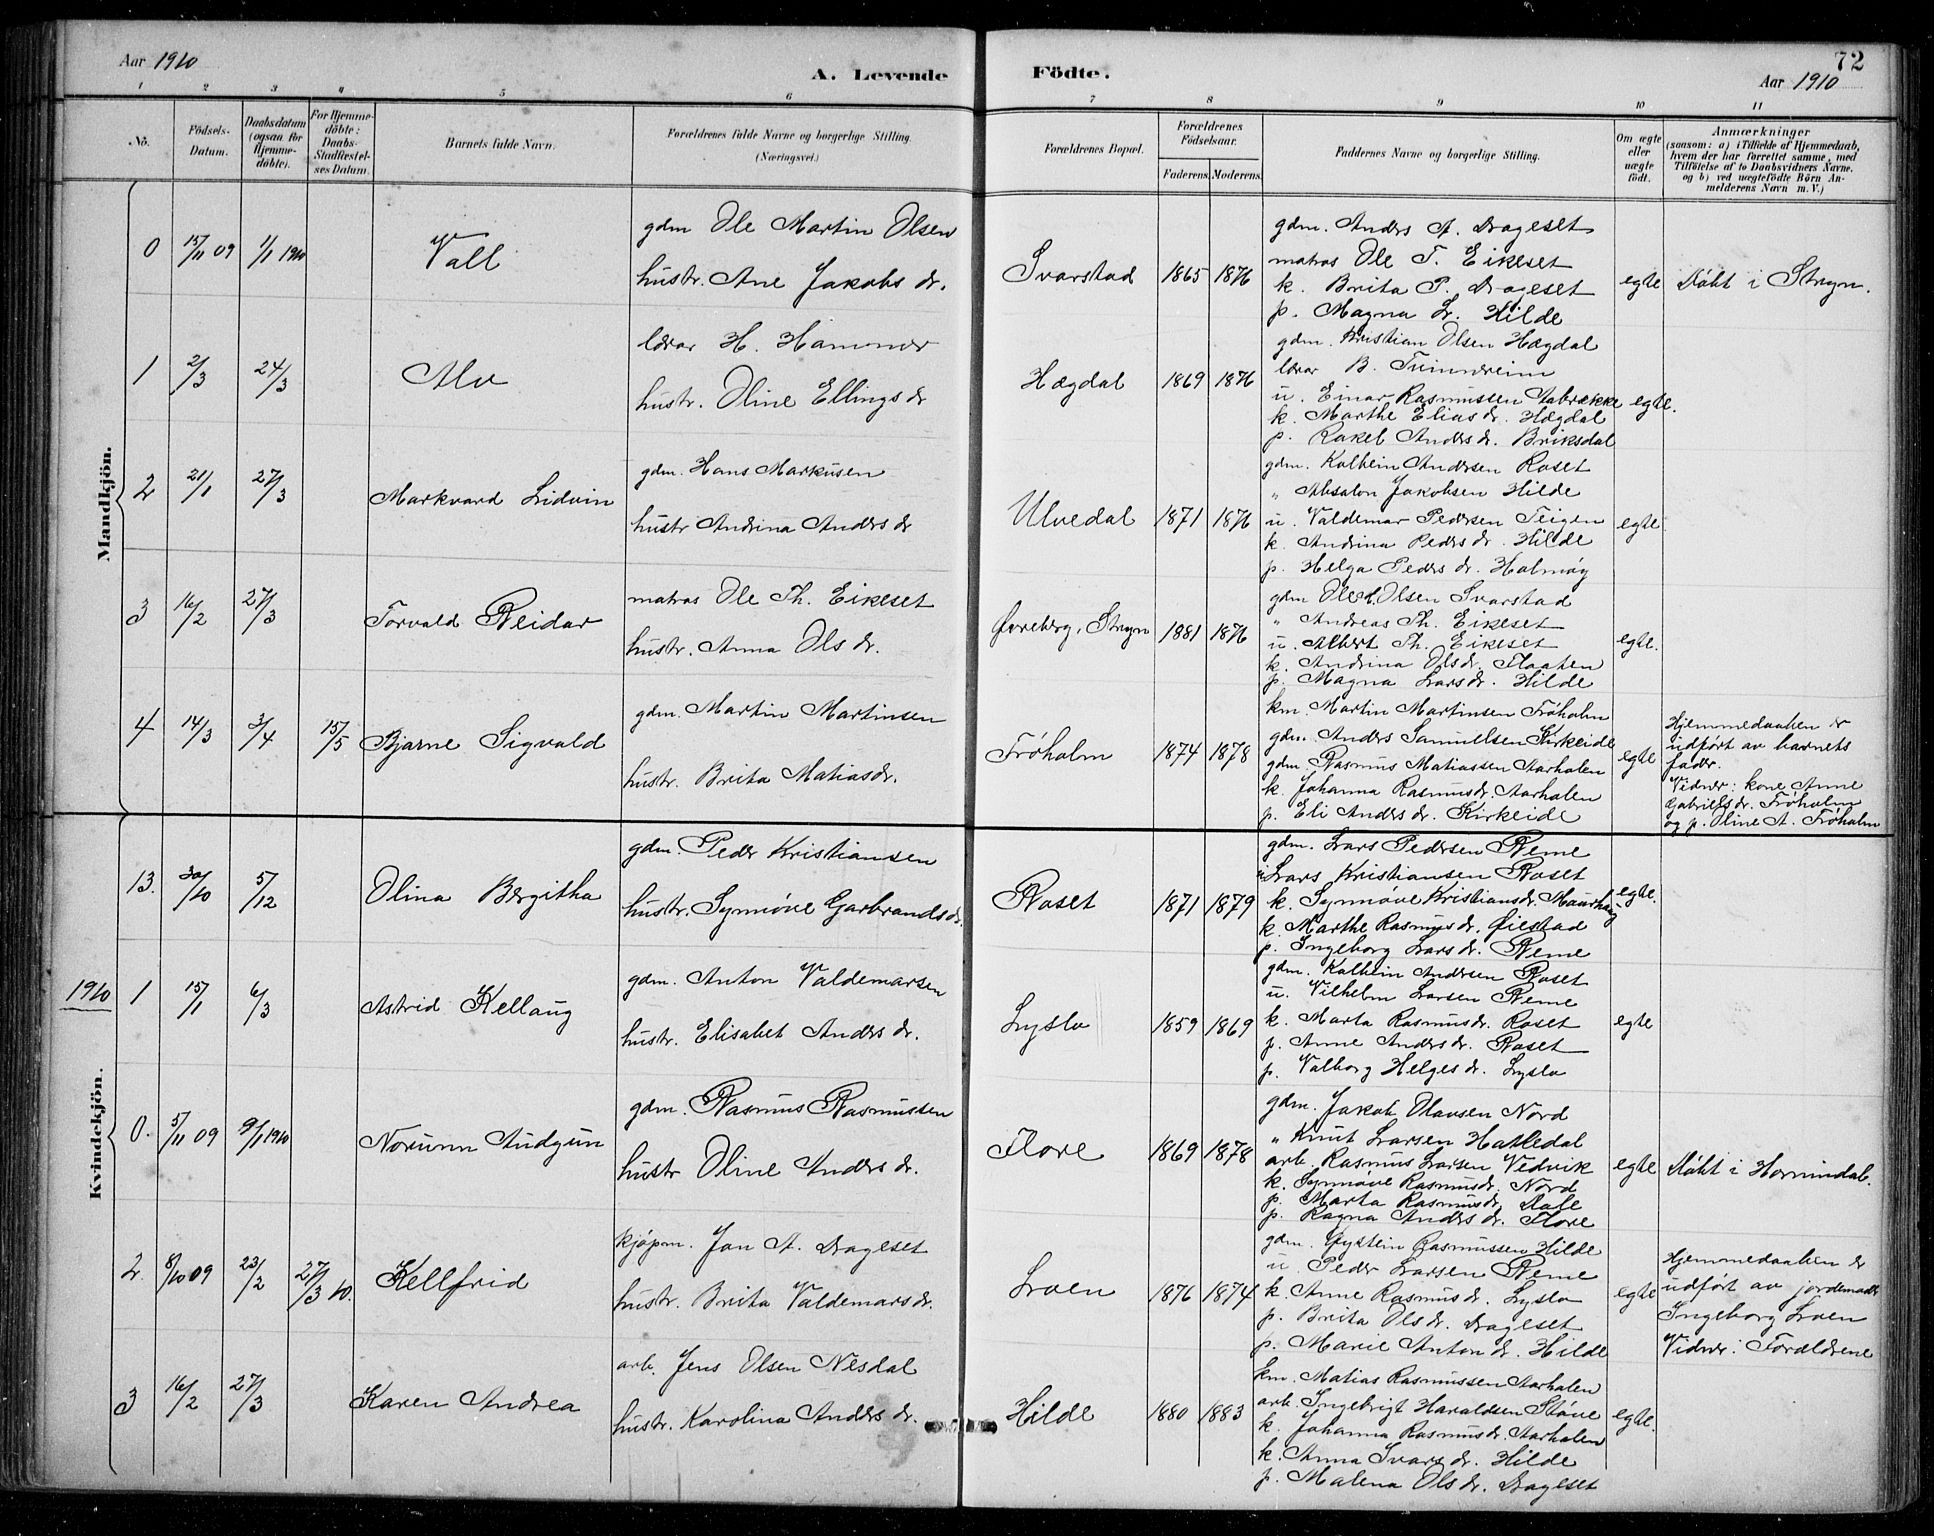 Aar 1910
A. Levende Födte.
72
Aar 1910
1 2 3 4 5 6 7 8 9 10 11
No.
Födsels-Datum.
Daabsdatum (ogsaa for Hjemme-döbte).
For Hjemme-döbte: Daabs-Stadfæstel-ses Datum.
Barnets fulde Navn.
Forældrenes fulde Navne og borgerlige Stilling.
(Næringsvei.)
Forældrenes Bopæl.
Forældrenes Födselsaar.
Faderens. Moderens.
Faddernes Navne og borgerlige Stilling.
Om ægte eller uægte födt.
Anmærkninger
(saasom: a) i Tilfælde af Hjemmedaab,
hvem der har forrettet samme, med
Tilföielse af to Daabsvidners Navne.
og b) ved uægtefödte Börn An-
melderens Navn m. V.)
Mandkjön.
0 15/11 09 1/1 1910 Vall
gdm Ole Martin Olsen
hustr. Ane Jakobs dr.
Svarstad 1865 1876
gdm. Anders A. Drageset
matros Ole T. Eikeset
k. Brita P. Drageset
p. Magna L. Hilde
egte Døbt i Stryn.
1 2/3 24/3 Alv
lærar H. Hammer
hustr. Oline Ellings dr
Hægdal 1869 1876
gdm. Kristian Olsen Hægdal
lærar B. Tunnereim
u. Einar Rasmussen Aabrække
k. Marthe Elias dr. Hægdal
p. Rakel Anders dr. Briksdal
egte.
2 21/1 27/3 Markvard Lidvin
gdm. Hans Markusen
hustr Andrina Anders dr
Ulvedal 1871 1876
gdm. Kolbein Andersen Roset
" Absalon Jakobsen Hilde
u. Valdemar Pedersen Teigen
k. Andrina Peders dr. Hilde
p. Helga Peders dr. Holmøy
egte
3 16/2 27/3 Torvald Reidar
matros Ole Th. Eikeset
hustr. Anna Ols dr.
Øvreberg, Stryn 1881 1876
gdm Ole O. Olsen Svarstad
" Andreas Th. Eikeset
u. Albert Th. Eikeset
k. Andrina Olsdr. Flaaten
p. Magna Lars dr. Hilde
egte.
4 14/3 3/4 15/5 Bjarne Sigvald
gdm. Martin Martinsen
hustr. Brita Matiasdr.
Frøholm 1874 1878
km. Martin Martinsen Frøholm
gdm. Anders Samuelsen Kirkeide
gdm Rasmus Matiassen Aarholen
k. Johanna Rasmusdr. Aarholen
p. Eli Anders dr. Kirkeide
egte
Hjemmedaaben er
udført av barnets
fader.
Vidner: kone Anne
Gabriels dr. Frøholm
og p. Oline A. Frøholm
Kvindekjön.
13. 30/10 5/12 Olina Bergitha
gdm. Peder Kristiansen
hustr. Synnøve Garbrandsdr.
Roset 1871 1879
gdm. Lars Pedersen Reme
" Lars Kristiansen Roset
k. Synnøve Kristiansdr. Maurhaug
k. Marthe Rasmusdr. Øiestad
p. Ingeborg Lars dr. Reme
egte.
1910 1 15/1 6/3 Astrid Kellaug
gdm. Anton Valdemarsen
hustr. Elisabet Anders dr.
Lyslo 1859 1869
gdm. Kolbein Andersen Roset
u. Vilhelm Larsen Reme
k. Marta Rasmusdr. Roset
p. Anne Anders dr. Roset
p. Valborg Helges dr. Lyslo
egte
0. 5/11 09 9/1 1910 Norunn Audgun
gdm. Rasmus Rasmussen
hustr Oline Anders dr.
Flore 1869 1878
gdm. Jakob Olausen Nord
" Knut Larsen Hatledal
arb. Rasmus Larsen Vedvik
k. Synnøve Rasmusdr. Nord
p. Marta Rasmusdr. Dale
p. Ragna Anders dr. Flore
egte Døbt i Hornindal.
2. 8/10 09 23/2 27/3 10. Kellfrid
kjøpm. Jon A. Drageset
hustr. Brita Valdemarsdr.
Loen 1876 1874
gdm. Øystein Rasmussen Hilde
u. Peder Larsen Reme
k. Anne Rasmusdr. Lyslo
p. Brita Olsdr. Drageset
p. Marie Anton dr. Hilde
egte
Hjemmedaaben er
udført av jordemoder
Ingeborg Loen
Vidner: Forældrene
3 16/2 27/3 Karen Andrea
arb. Jens Olsen Nesdal
hustr. Karolina Anders dr.
Hilde 1880 1883
km. Matias Rasmussen Aarholen
arb. Ingebrigt Haraldsen Støve
k. Johanna Rasmusdr. Aarholen
k. Anna Ivars dr. Hilde
p. Malena Ols dr. Drageset
egte.